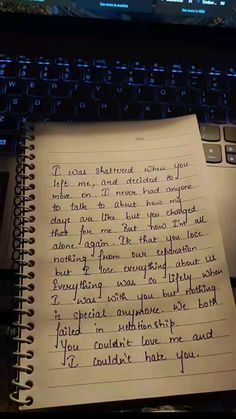 I was shattered when you
left me, and decided to
move on. I never had anyone
to talk to about how my
days are like but you changed
that for me. But now I'm all
alone again. Ik that you lose
nothing from our separation
but I lose everything about us
Everything was so lifely when
I was with you but nothing
is special anymore. We both
failed in relationship.
You couldn't love me and
I couldn't hate you.